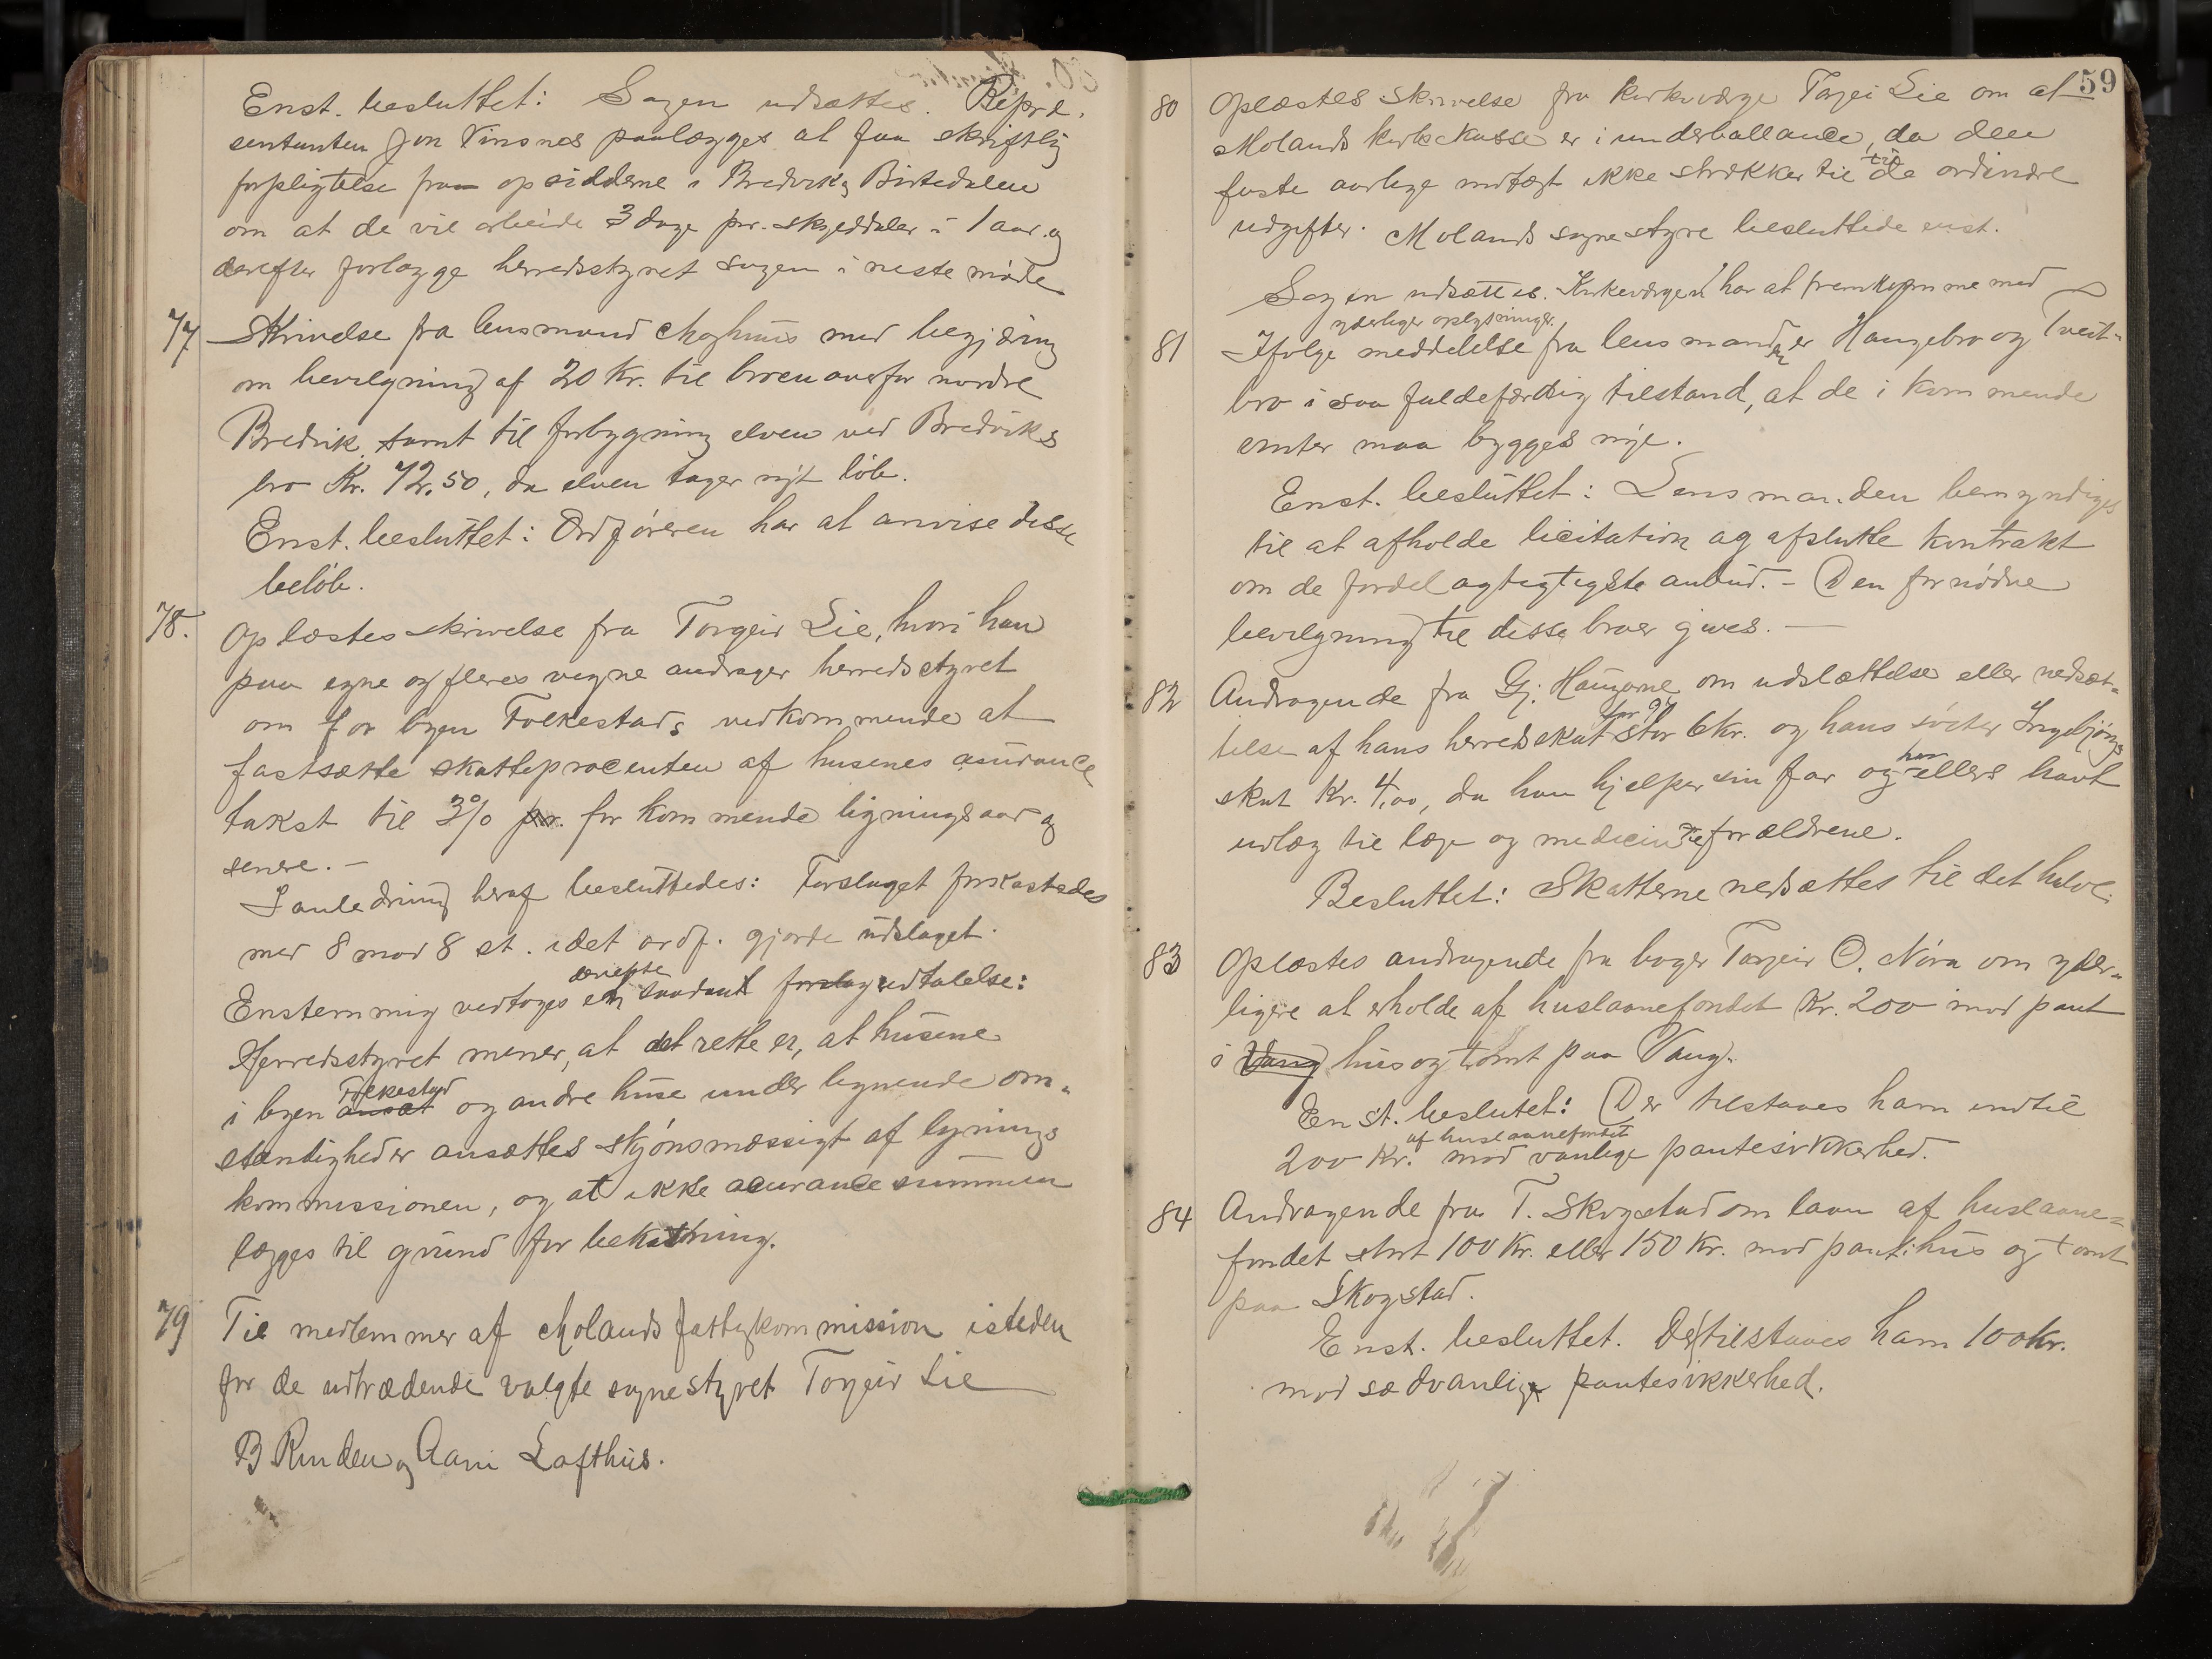 Enst. besluttet: Sagen udsættes. Repræ-
sentanten Jon Vinsnes paalægges at faa skriftlig
forpligtelse fra opsidderne i Bredvik og Birtedalen
om at de vil arbeide 3 dage pr. skylddaler i 1 aar og
derefter forlægge herredsstyret sagen i neste møde
77 Skrivelse fra lensmand Moghuus med begjæring
om bevilgning af 20 Kr. til broen overfor nordre
Bredvik samt til forbygning elven ved Bredviks
bro Kr. 72.50, da elven tager nyt løb.
Enst. besluttet: Ordføreren har at anvise disse
beløb.
78. Oplæstes skrivelse fra Torgeir Lie, hvori han
paa egne og fleres vegne andrager herredsstyret
om for byen Folkestads vedkommende at
fastsætte skatteprocenten af husenes asurance
takst til 3% pr. for kommende ligningsaar og
senere. -
I anledning heraf besluttedes: Forslaget forkastedes
med 8 mod 8 st. idet ordf. gjorde udslaget.
derefter
Enstemmig vedtoges en saadant forslag udtalelse:
Herredsstyret mener, at det rette er, at husene
Folkestad
i byen ansat og andre huse under lignende om-
stændigheder ansættes skjønsmæssigt af lignings
kommissionen, og at ikke acurance summen
lægges til grund for beskatning.
79 Til medlemmer af Molands fattigkommission isteden
for de udtrædende valgte sognestyret Torgeir Lie
B Rinden og Aani Lofthus.
59
80 Oplæstes skrivelse fra kirkeværge Torgei Lie om at
Molands kirkekasse er i underballance, da den
til
faste aarlige indtægt ikke strækker til de ordinære
udgifter. Molands sognestyre besluttede enst.
Sagen udsættes. Kirkeværgen har at fremkomme med
yderliger oplysninger.
81 Ifølge meddelelse fra lensmanden er Haugebro og Tveit-
bro i saa faldefærdig tilstand, at de i kommende
vinter maa bygges nye.
Enst. besluttet: Lensmanden bemyndiges
til at afholde licitation og afslutte kontrakt
om de fordelagtigtigste anbud. - Den fornødne
bevilgning til disse broer gives. -
82 Andragende fra Gj. Haugerne om udslættelse eller nedsæt-
for 97
telse af hans herredskat stor 6 kr. og hans søster Ingebjørgs
har
skat Kr. 4,00, da han hjelper sin far og ellers havt
udlæg til læge og medicin til forældrene.
Besluttet: Skatterne nedsættes til det halve.
83 Oplæstes andragende fra bager Torgeir O. Nóra om yder-
ligere at erholde af huslaanefondet Kr. 200 mod pant
i Vang hus og tomt paa Vang.
Enst. beslutet: Der tilstaaes ham indtil
af huslaanefondet
200 Kr. mod vanlige pantesikkerhed.
84 Andragende fra T. Skogstad om laan af huslaane-
fondet stort 100 Kr. eller 150 Kr. mod pant i hus og tomt
paa Skogstad.
Enst. besluttet. Der tilstaaes ham 100 kr.
mod sædvanlige pantesikkerhed.